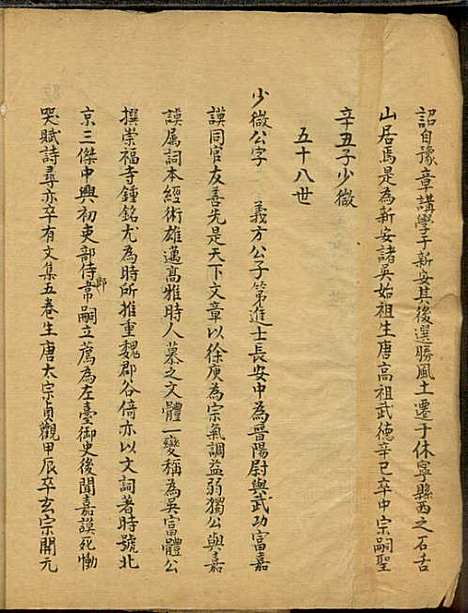 詔自豫章講學于新安其後選勝風土遷于休寧縣西之石舌
山居焉是為新安諸吳始祖生唐高祖武德辛巳卒中宗嗣聖
辛丑子少微
五十八世
少微公字 義方公子第進士長安中為晋陽尉與武功富嘉
謨同官友善先是天下文章以徐庾為宗氣調益弱獨公與嘉
謨属詞本經術雄邁高雅時人慕之文體一變稱為吳富體公
撰崇福寺鍾銘尤為時所推重魏郡谷倚亦以文詞著時號北
京三傑中興初吏部侍郎韋嗣立薦為左臺御史後聞嘉謨死慟
哭賦詩尋亦卒有文集五卷生唐太宗貞觀甲辰卒玄宗開元